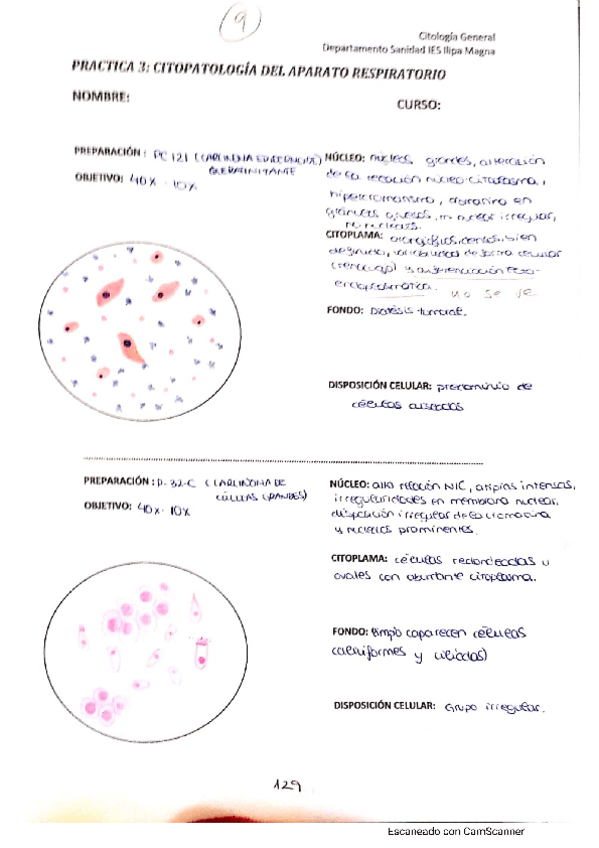 9
Citología General
Departamento Sanidad IES Ilipa Magna
PRACTICA 3: CITOPATOLOGÍA DEL APARATO RESPIRATORIO
NOMBRE:
CURSO:
PREPARACIÓN: PC 121 (CARCINOMA EPIDERMOIDE)
QUERATINIZANTE
OBJETIVO: 40x · 10x
NÚCLEO: núcleos grandes, alteración
de la relación núcleo-citoplasma,
hipercromatismo, cromatina en
gránulos gruesos, m. nuclear irregular,
no nucleolos.
CITOPLAMA: densos, bien
definido, variabilidad de forma celular
y
no se ve
FONDO: Diátesis tumoral.
DISPOSICIÓN CELULAR: predominio de
células aisladas
PREPARACIÓN: P-32-C (CARCINOMA DE
CÉLULAS GRANDES)
OBJETIVO: 40x · 10x
NÚCLEO: alta relación N/C, atipias intensas,
irregularidades en membrana nuclear,
disposición irregular de la cromatina
y nucleolos prominentes.
CITOPLAMA: células redondeadas u
ovales con abundante citoplasma.
FONDO: limpio (aparecen células
caliciformes y ciliadas)
DISPOSICIÓN CELULAR: Grupo irregular.
129
Escaneado con CamScanner